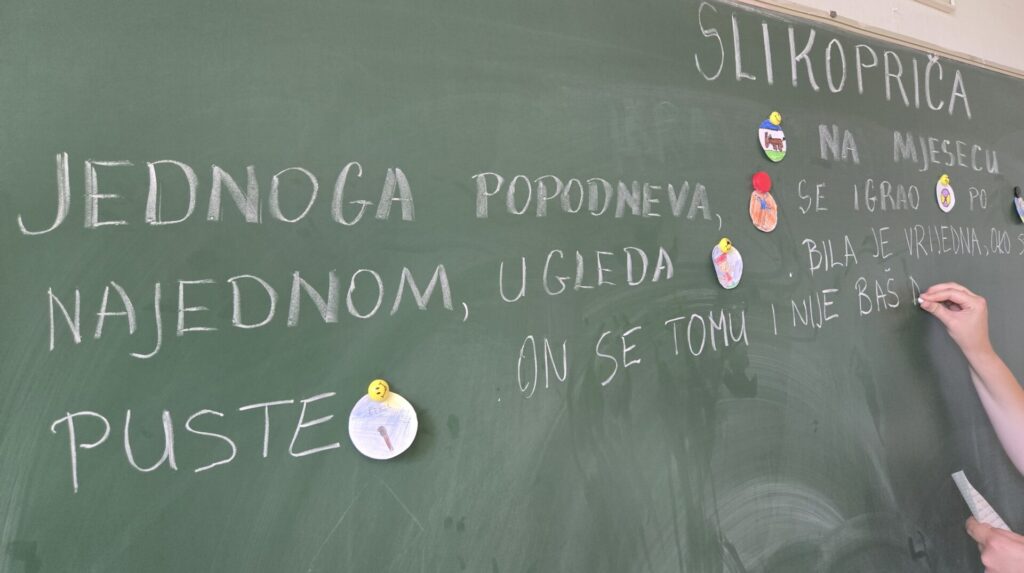 SLIKOPRIČA
NA MJESECU
JEDNOGA POPODNEVA, SE IGRAO PO
NAJEDNOM, UGLEDA . BILA JE VRIJEDNA, OKO
PUSTE ON SE TOMU I NIJE BAŠ